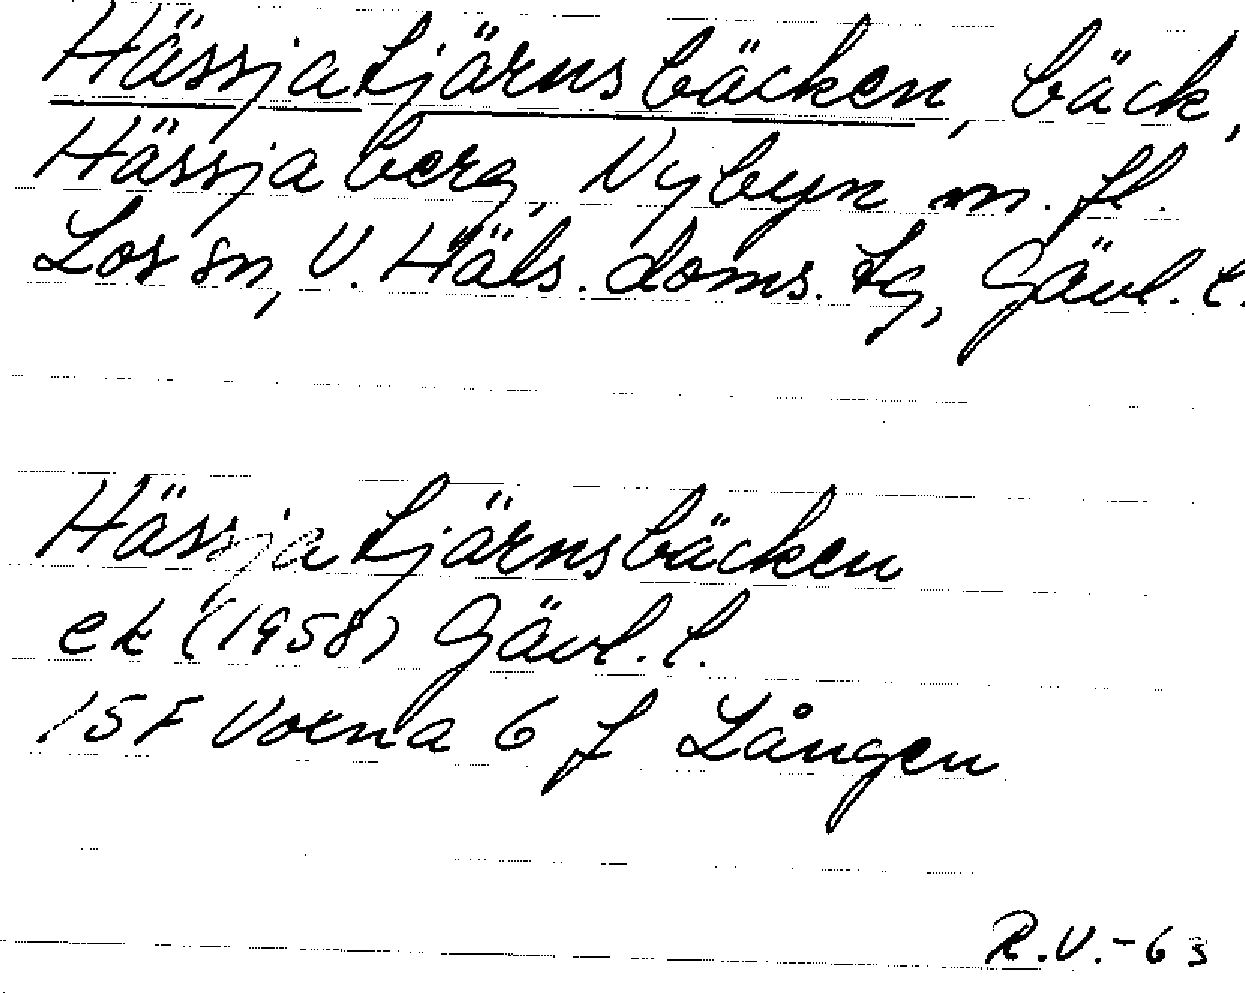 Hässjatjärnsbäcken, bäck,
Hässjaberg, Nybyn m. fl.
Los sn, V. Häls. doms. tg, Gävl. l.
Hässjatjärnsbäcken
ek (1958) Gävl. l.
15F Voxna 6 f Lången
R.V.-63